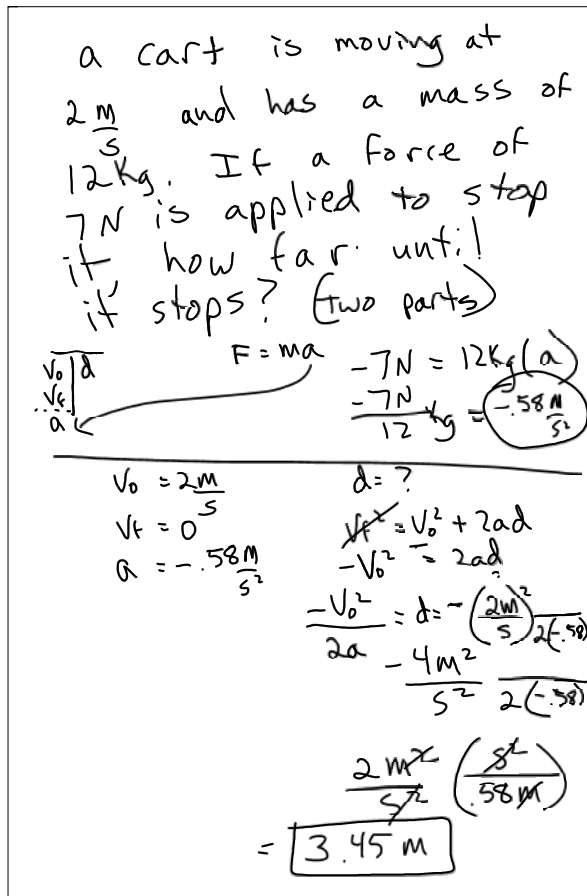 a cart is moving at
2 m/s and has a mass of
12Kg. If a force of
7N is applied to stop
it how far until
it stops? (two parts)
V₀ | d
Vf
a
F = ma
-7N = 12Kg(a)
-7N/12 Kg = -.58 M/s²
V₀ = 2 m/s
Vf = 0
a = -.58 M/s²
d = ?
Vf² = V₀² + 2ad
-V₀² = 2ad
-V₀²/2a = d = -(2m/s)² /2(-.58)
-4m²/s² /2(-.58)
2 m²/s² (s²/.58m)
= 3.45 m